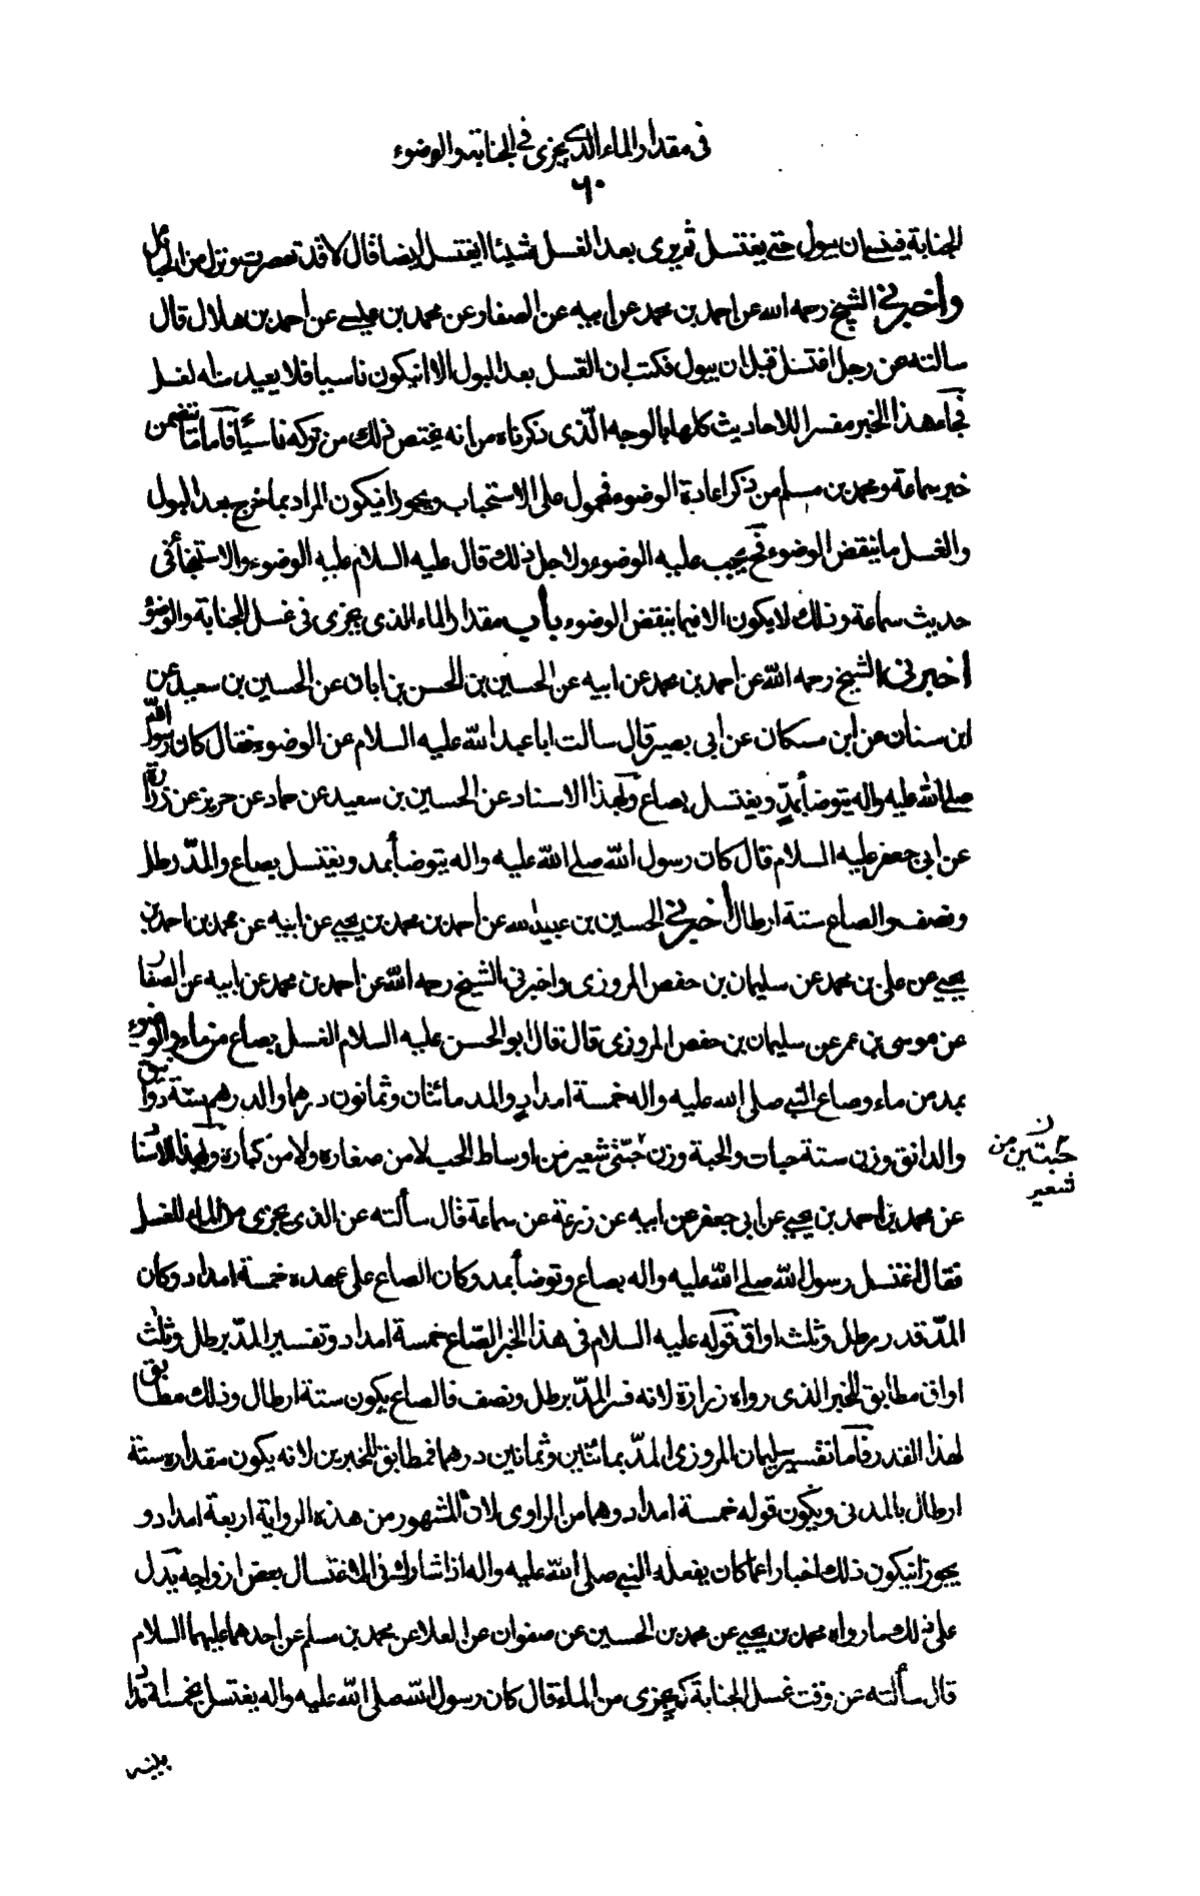 في مقدار الماء الذي يجزي في الجنابة والوضوء
٦٠
الجنابة فينسى ان يبول حتى يغتسل ثم يرى بعد الغسل شيئا ايغتسل ايضا قال لا قد تعصرت ونزل من الحبائل
واخبرني الشيخ رحمه الله عن احمد بن محمد عن ابيه عن الصفار عن محمد بن عيسى عن احمد بن هلال قال
سالته عن رجل اغتسل قبل ان يبول فكتب ان الغسل بعد البول الا ان يكون ناسيا فلا يعيد منه الغسل
فجاء هذا الخبر مفسرا للاحاديث كلها بالوجه الذي ذكرناه من انه يختص ذلك من تركه ناسيا فاما ما تتضمن
خبر سماعة ومحمد بن مسلم من ذكر اعادة الوضوء فمحمول على الاستحباب ويجوز ان يكون المراد بما خرج بعد البول
والغسل ما ينقض الوضوء فح يجب عليه الوضوء ولاجل ذلك قال عليه السلام عليه الوضوء والاستنجاء في
حديث سماعة وذلك لا يكون الا فيما ينقض الوضوء باب مقدار الماء الذي يجزي في غسل الجنابة والوضوء
اخبرني الشيخ رحمه الله عن احمد بن محمد عن ابيه عن الحسين بن الحسن بن ابان عن الحسين بن سعيد عن
ابن سنان عن ابن مسكان عن ابي بصير قال سالت ابا عبد الله عليه السلام عن الوضوء فقال كان رسول الله
صلى الله عليه واله يتوضأ بمد ويغتسل بصاع وبهذا الاسناد عن الحسين بن سعيد عن حماد عن حريز عن زرارة
عن ابي جعفر عليه السلام قال كان رسول الله صلى الله عليه واله يتوضأ بمد ويغتسل بصاع والمدّ رطل
ونصف والصاع ستة ارطال اخبرني الحسين بن عبيد الله عن احمد بن محمد بن يحيى عن ابيه عن محمد بن احمد بن
يحيى عن علي بن محمد عن سليمان بن حفص المروزي واخبرني الشيخ رحمه الله عن احمد بن محمد عن ابيه عن الصفار
عن موسى بن عمر عن سليمان بن حفص المروزي قال قال ابو الحسن عليه السلام الغسل بصاع من ماء والوضوء
بمد من ماء وصاع النبي صلى الله عليه واله خمسة امداد والمد مائتان وثمانون درهما والدرهم ستة دوانيق
والدانق وزن ستة حبات والحبة وزن حبّتي شعير من اوساط الحب لا من صغاره ولا من كباره وبهذا الاسناد
حبتين من
شعير
ن
عن محمد بن احمد بن يحيى عن ابي جعفر عن ابيه عن زرعة عن سماعة قال سألته عن الذي يجزي من الماء للغسل
فقال اغتسل رسول الله صلى الله عليه واله بصاع وتوضأ بمد وكان الصاع على عهده خمسة امداد وكان
المدّ قدر رطل وثلث اواق قوله عليه السلام في هذا الخبر الصّاع خمسة امداد وتفسير المدّ برطل وثلث
اواق مطابق للخبر الذي رواه زرارة لانه فسر المدّ برطل ونصف فالصاع يكون ستة ارطال وذلك مطابق
لهذا القدر فاما تفسير سليمان المروزي المدّ بمائتين وثمانين درهما فمطابق للخبرين لانه يكون مقداره ستة
ارطال بالمدني ويكون قوله خمسة امداد وهما من الراوي لان المشهور من هذه الرواية اربعة امداد و
يجوز ان يكون ذلك اخبارا عما كان يفعله النبي صلى الله عليه واله اذا شارك في الاغتسال بعض ازواجه يدل
على ذلك ما رواه محمد بن يحيى عن محمد بن الحسين عن صفوان عن العلا عن محمد بن مسلم عن احدهما عليهما السلام
قال سألته عن وقت غسل الجنابة كم يجزي من الماء قال كان رسول الله صلى الله عليه واله يغتسل بخمسة امداد
بينه